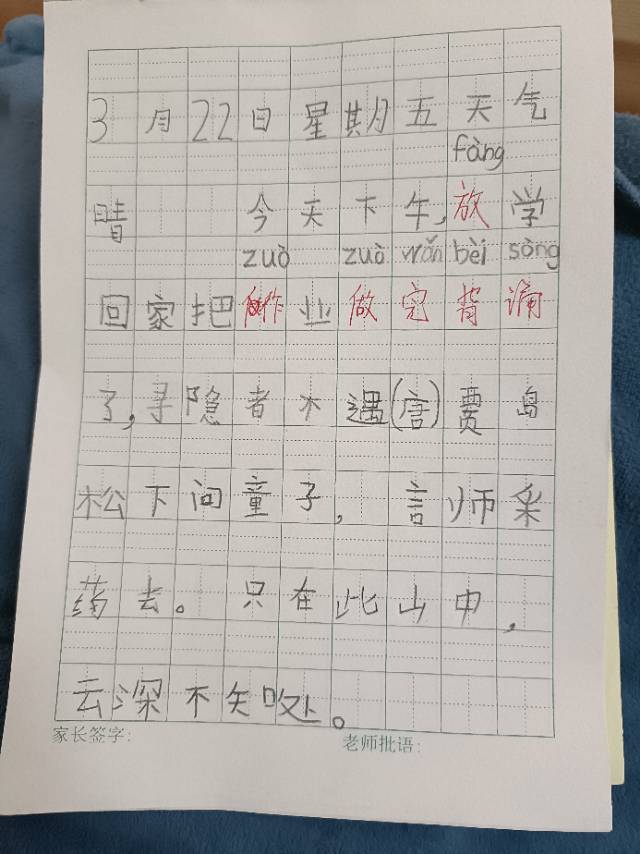 3月22日星期五天气
fàng
晴 今天下午,放学
zuò zuò wán bèi sòng
回家把作业做完背诵
了,寻隐者不遇(唐)贾岛
松下问童子, 言师采
药去。只在此山中,
云深不知处。
家长签字: 老师批语: